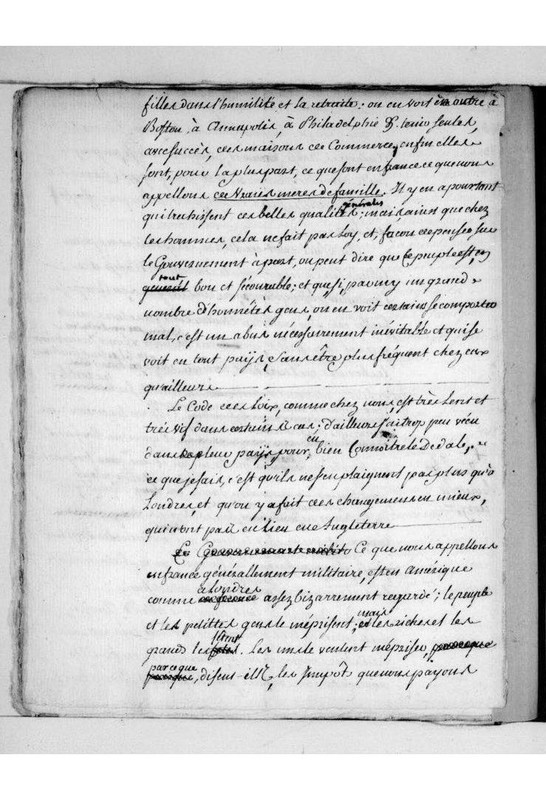 filles dans l'humilité et la retraite: on en voit en outre à
Boston, à Annapolis, à Philadelphie &. tenir seules,
avec succès, des maisons de Commerce; enfin elles
sont, pour la plus part, ce que sont en france ce que nous
appellons des Vraies meres de famille. Il y en a pourtant
qui trahissent ces belles qualités générales; mais ainsi que chez
les hommes, cela ne fait pas Loy, et, façon de penser sur
le Gouvernement à part, on peut dire que ce peuple est, en
tout bon et sécourable; et que, si parmy un grand
nombre d'honnêtes gens, on en voit certains se comporter
mal, c'est un abus nécessairement inévitable et qui se
voit en tout païs, sans être plus fréquent chez eux
qu'ailleurs
Le Code des Loix, comme chez nous, est très Lent et
très vif dans certains cas; d'ailleurs j'ai trop peu vécu
dans leur païs pour en bien Connoître le Dedale,
ce que je sais, c'est qu'ils ne s'en plaignent pas plus qu'à
Londres, et qu'on y a fait des changemens en mieux,
qui n'ont pas eu lieu en Angleterre
Ce que nous appellons
en france généralement militaire, est en Amérique
comme à Londres assez bizarrement regardé; le peuple
et les petittes gens le méprisent; mais les riches et les
grands Les uns le veulent mépriser,
parceque, disent-ils, les Impôts que nous payons